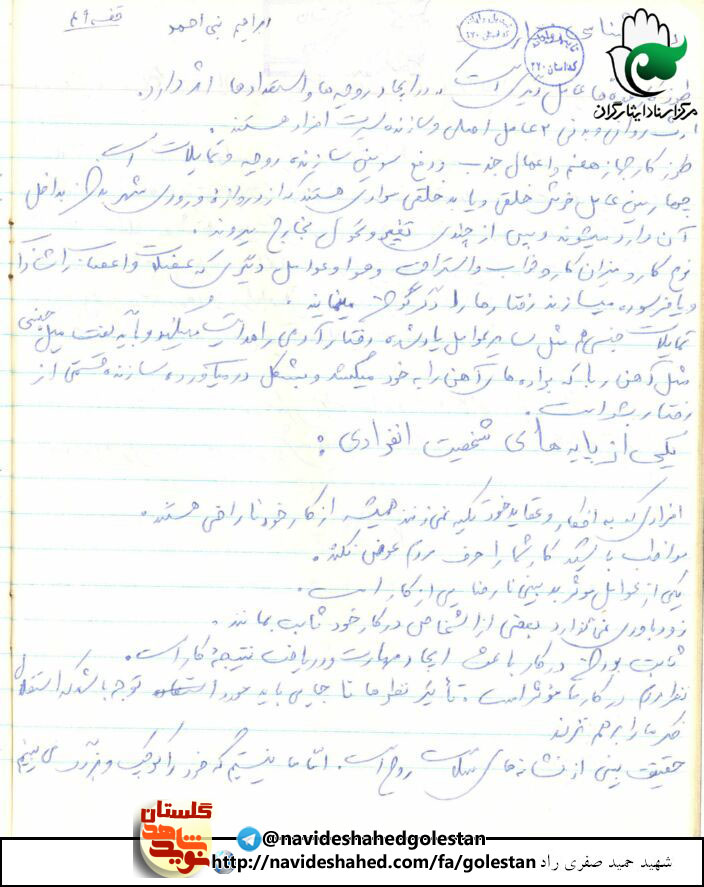 ابراهیم نبی احمد
طرز عامل دیگری است. در ایجاد روحیه ها و استعدادها اثر دارد.
ارث روانی و بدنی ۲ عامل اصلی و سازنده سیرت افراد هستند.
طرز کار جهاز هضم و اعمال جذب و دفع سومین سازنده روحیه و تمایلات است
چهارمین عامل خوش خلقی و یا بد خلقی موادی هستند که از دروازه ورودی شهر بدن بداخل
آن وارد میشوند و پس از چندی تغییر و تحول بخارج میروند.
نوع کار و میزان کار و خواب و استراحت و هوا و عوامل دیگری که عضلات و اعصاب را
و یا فرسوده میسازند رفتارها را دگرگون مینمایند.
تمایلات جنسی هم مثل سایر عوامل یاد شده رفتار آدمی را هدایت میکنند و باید گفت میل جنسی
مثل آهن ربا که براده های آهن را به خود میکشد و بشکل در میآورد، سازنده قسمتی از
رفتار بشر است.
یکی از پایه های شخصیت انفرادی:
افرادی که به افکار و عقاید خود تکیه نمی زنند همیشه از کار خود ناراضی هستند.
مواظب باشید کار شما را حرف مردم عوض نکند.
یکی از عوامل موثر بدبینی نارضایی از کار است.
زودباوری نمی گذارد بعضی از اشخاص در کار خود ثابت بمانند.
ثابت بودن در کار باعث ایجاد مهارت و دریافت نتیجه کار است.
نظر مردم در کار ما مؤثر است. تأثیر نظرها تا جایی باید مورد توجه باشد که استقلال
فکر ما را برهم نزند
حقیقت بینی از نشانه های سلامت روح است. اما ما نیستیم که خود را کوچک و بزرگ می بینیم
مرکز اسناد ایثارگران
گلستان
نوید شاهد
@navideshahedgolestan
http://navideshahed.com/fa/golestan شهید حمید صفری راد